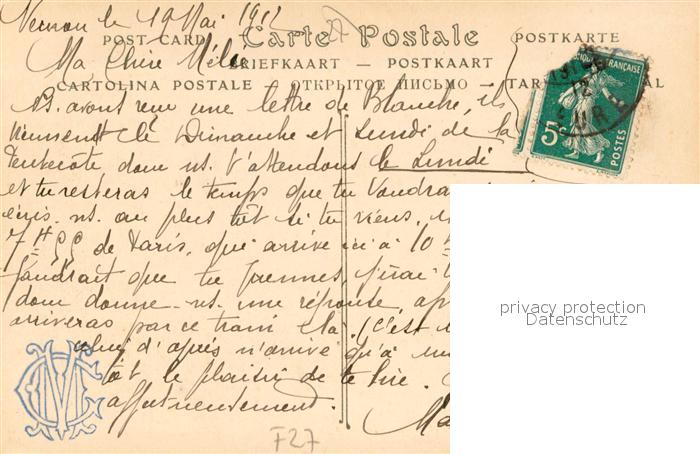 Vernon le 19 Mai 1912
POST CARD Carte Postale POSTKARTE
Ma Chère Mélie
BRIEFKAART — POSTKAART
CARTOLINA POSTALE ОТКРЫТОЕ ПИСЬМО — TAR AL
Ns. avons reçu une lettre de Blanche, ils
viennent le Dimanche et Lundi de la
Pentecôte donc ns. t'attendons le Lundi
et tu resteras le temps que tu voudras
écris-ns. au plus tôt si tu viens,
7H 55 de Paris, qui arrive ici à 10H
faudrait que tu prennes, j'irai
donc donne-ns. une réponse
arriveras par ce train là. (c'est
celui d'après n'arrive qu'à
tôt le plaisir de te lire.
affectueusement.
Ma
RÉPUBLIQUE FRANÇAISE
5c
POSTES
EURE
F27
privacy protection
Datenschutz